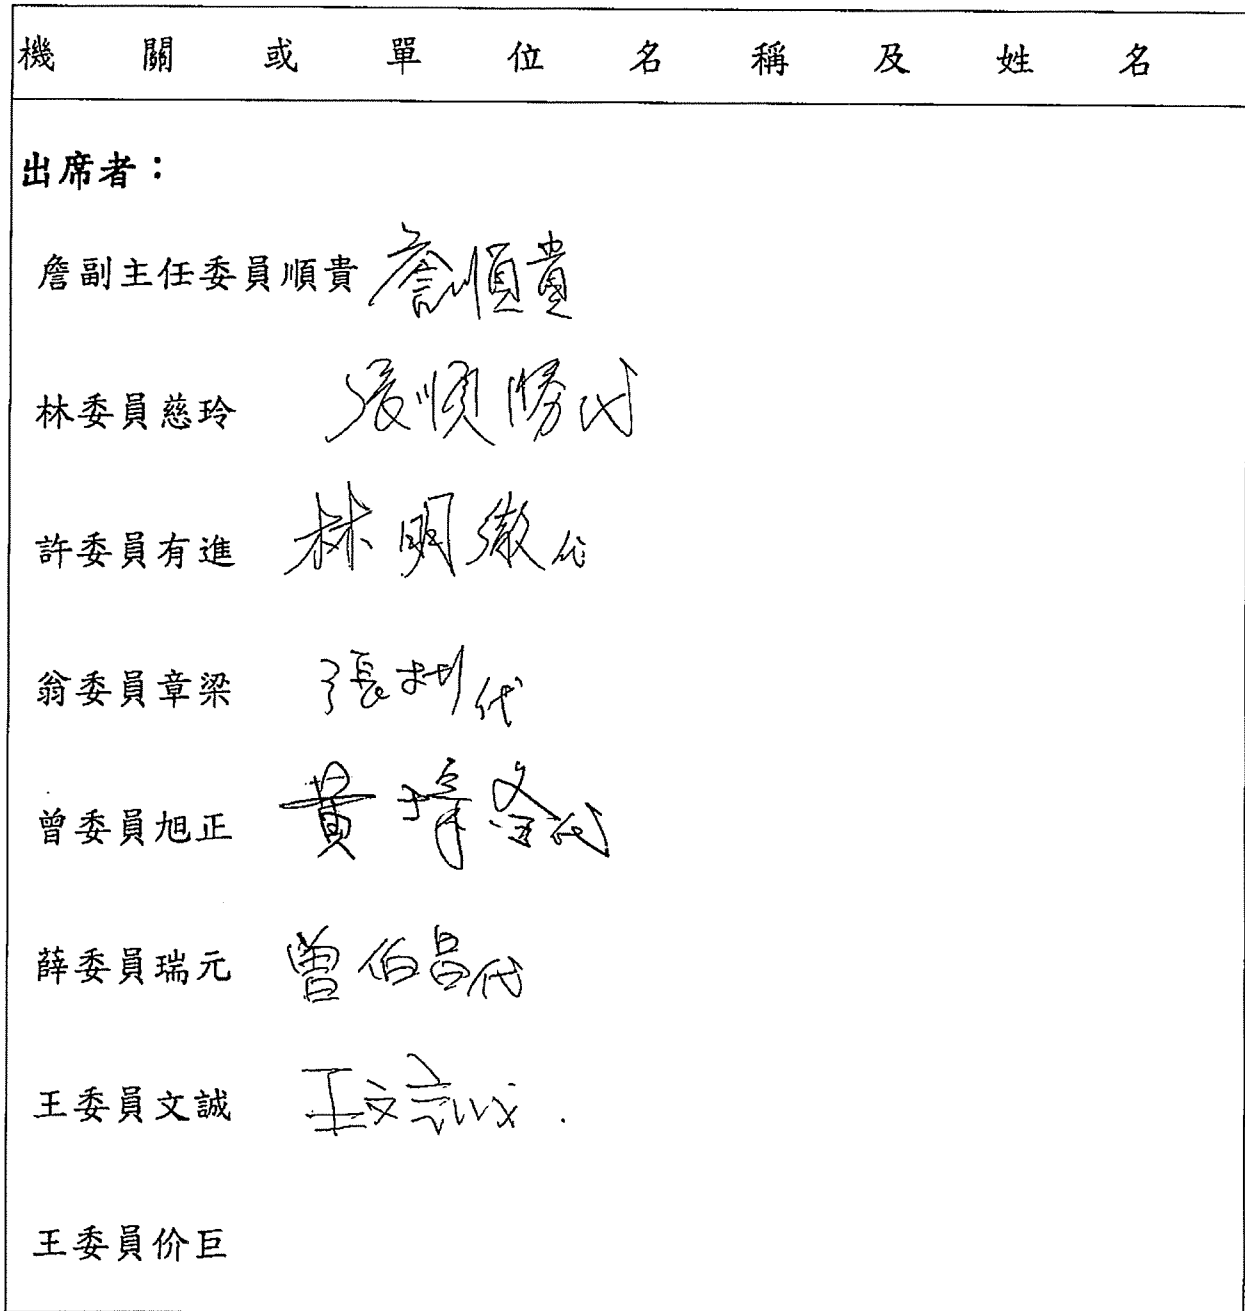 機關或單位名稱及姓名
出席者：
詹副主任委員順貴 詹順貴
林委員慈玲 張順勝代
許委員有進 林明徹代
翁委員章梁 張 代
曾委員旭正 黃 代
薛委員瑞元 曾伯昌代
王委員文誠 王文誠
王委員价巨